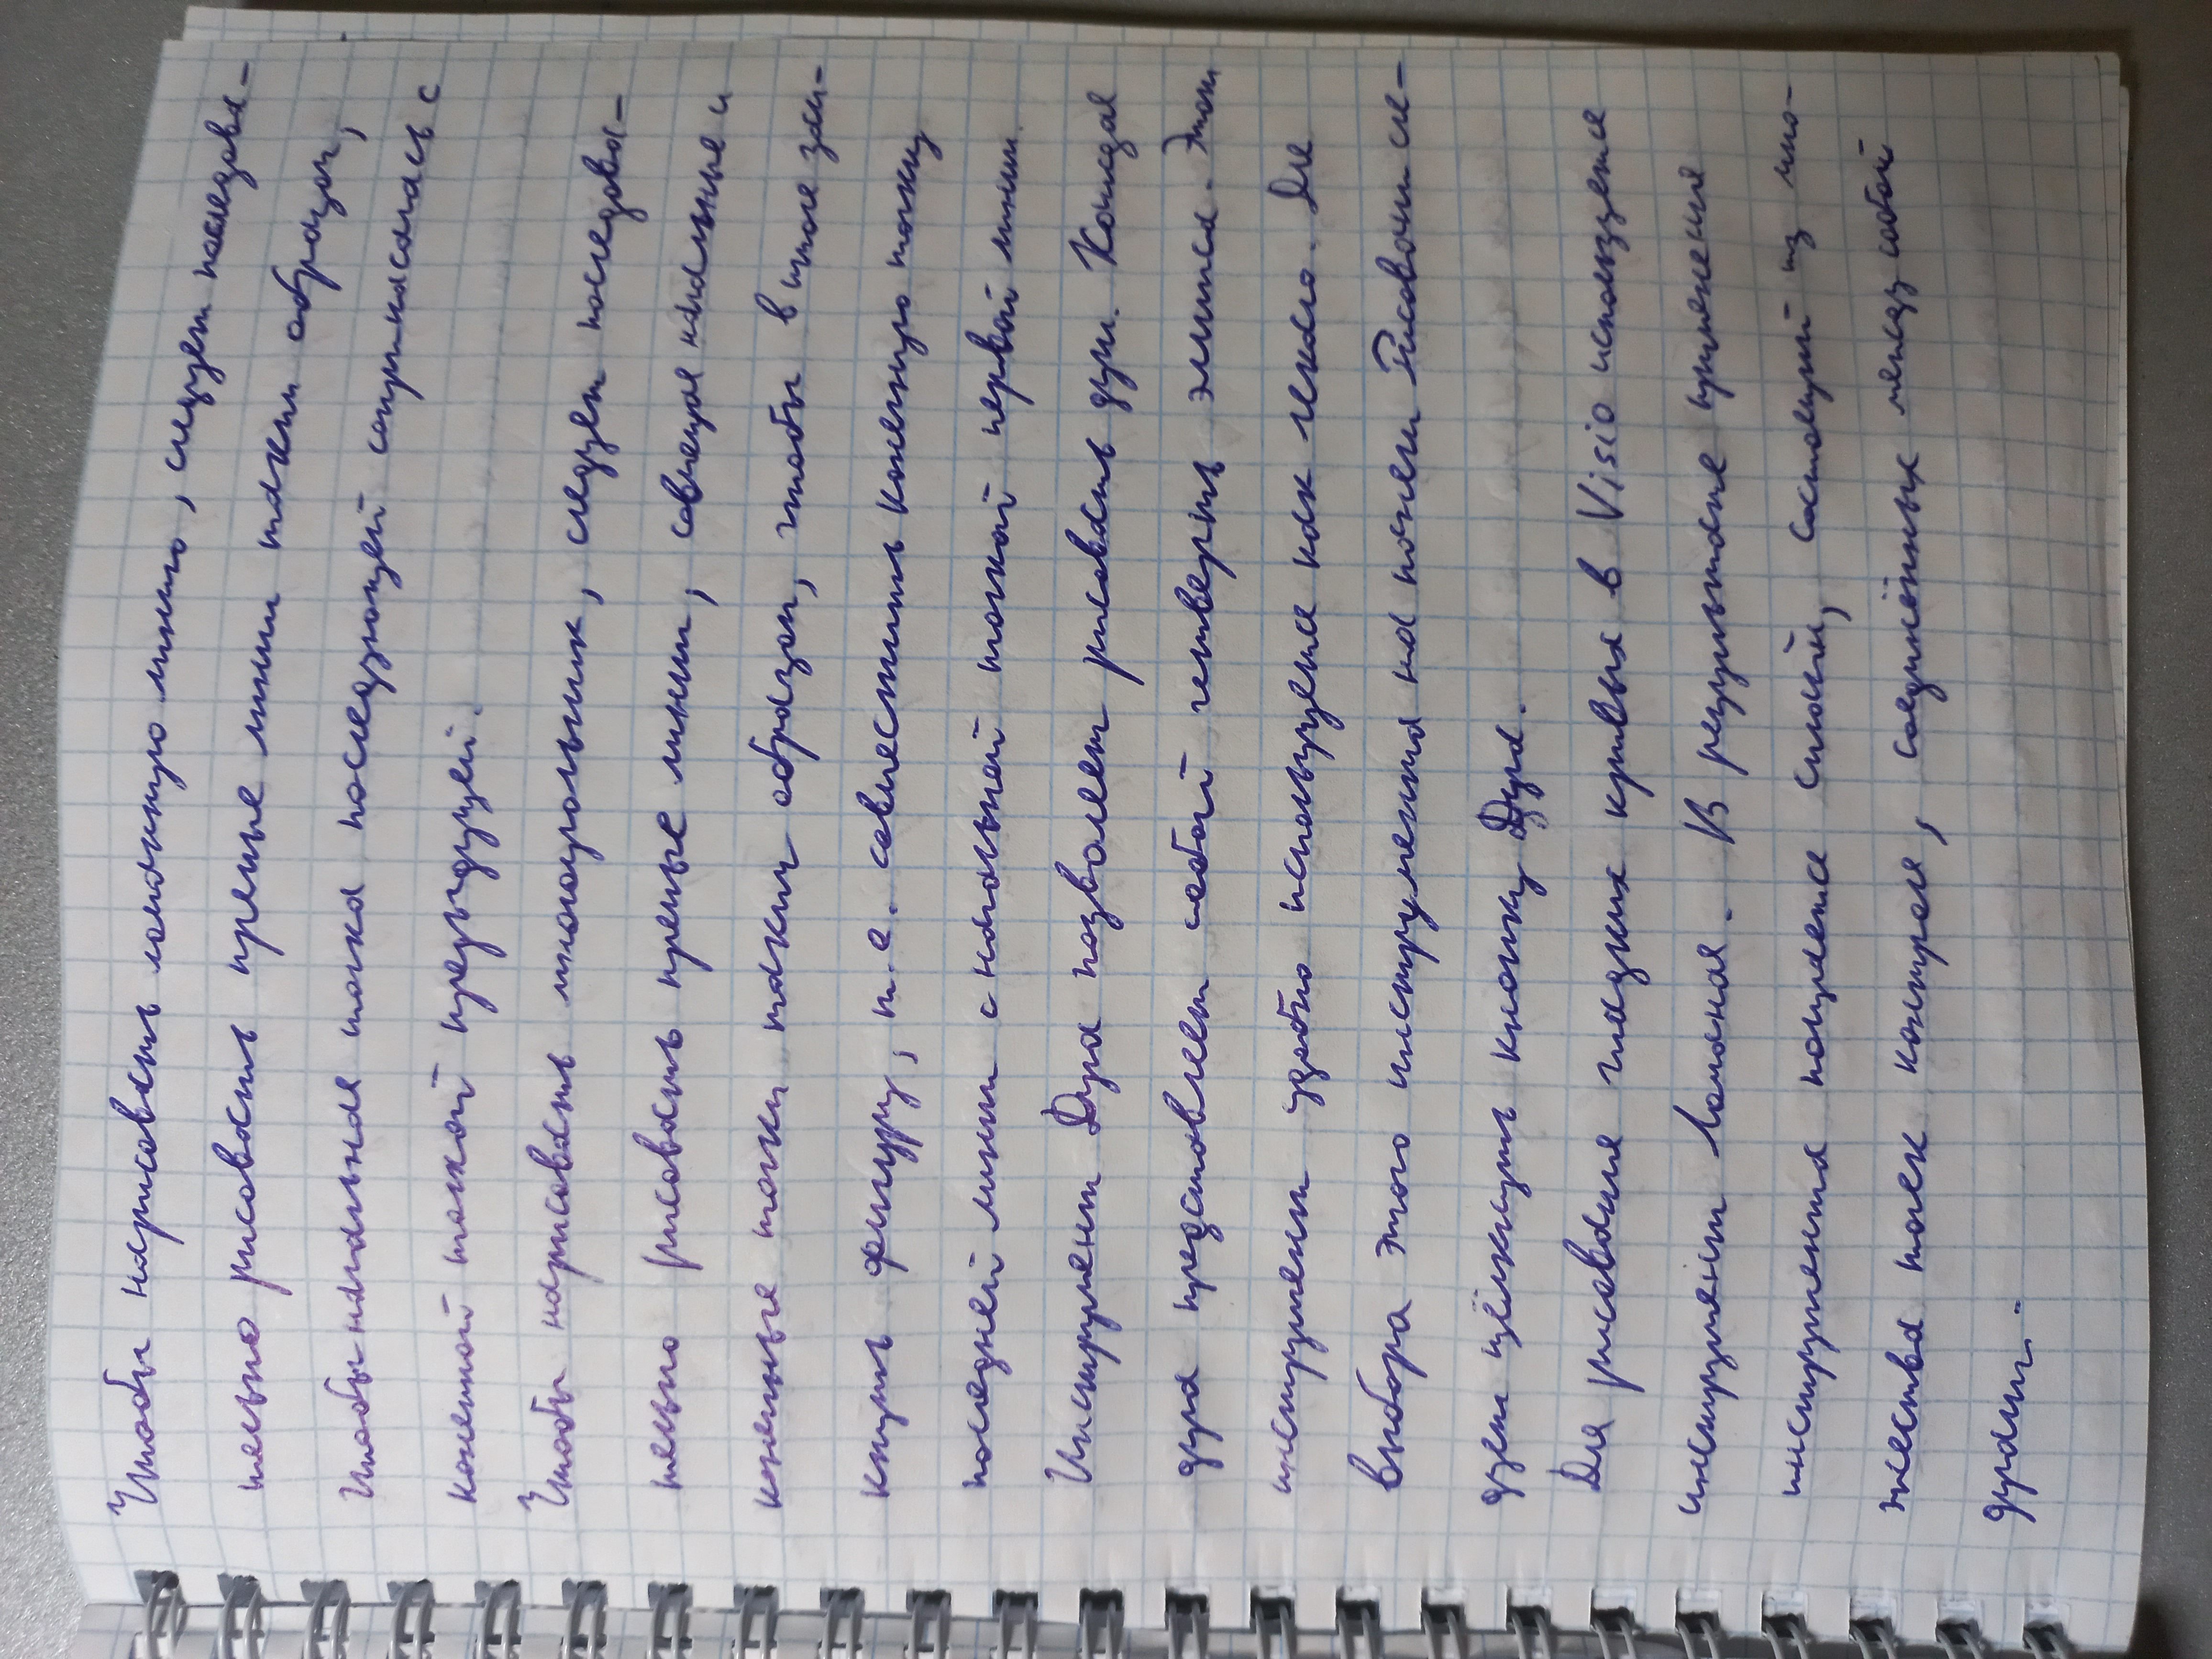 Чтобы нарисовать ломанную линию, следует последова-
тельно рисовать прямые линии таким образом,
чтобы начальная точка последующей соприкасалась с
конечной точкой предыдущей.
Чтобы нарисовать многоугольник, следует последова-
тельно рисовать прямые линии, совмещая начальные и
конечные точки таким образом, чтобы в итоге зам-
кнуть фигуру, т.е. совместить конечную точку
последней линии с начальной точкой первой линии.
Инструмент Дуга позволяет рисовать дуги. Каждая
дуга представляет собой четверть эллипса. Этот
инструмент удобно использовать как лекало. Для
выбора этого инструмента на панели Рисования сле-
дует щёлкнуть кнопку Дуга.
Для рисования гладких кривых в Visio используется
инструмент Ломаная. В результате применения
инструмента получается сплайн, состоящий из мно-
жества точек контуром, соединённых между собой
дугами.